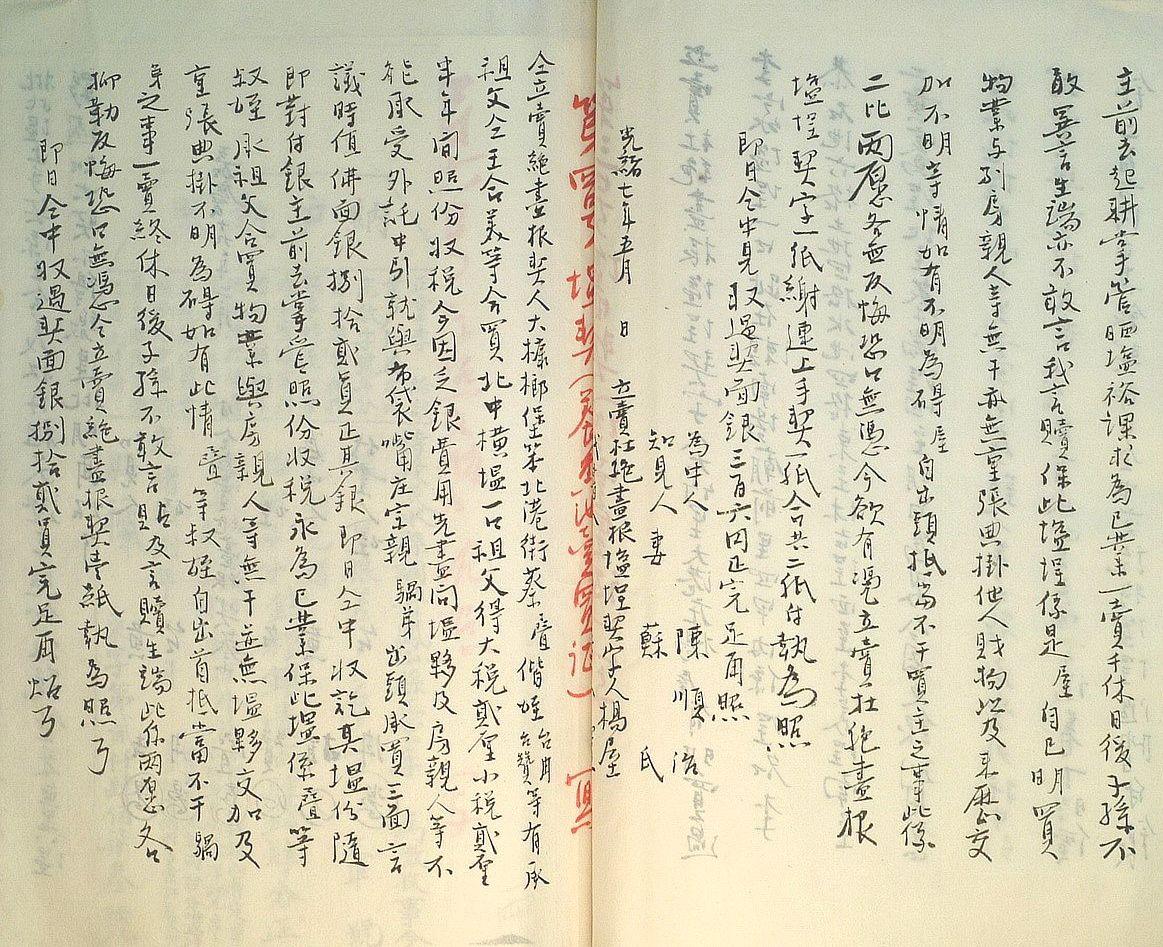 主前去起耕掌管晒塭裕課永為己業一賣千休日後子孫不
敢異言生端亦不敢言找言贖保此塭埕係是屋自己明買
物業与別房親人等無干亦無重張典掛他人財物以及來歷交
加不明等情如有不明為碍屋自出頭抵當不干買主之事此係
二比兩愿各無反悔恐口無憑今欲有憑立賣杜絕盡根
塭埕契字一紙繳連上手契一紙合共二紙付執為照
即日仝中見収過契面銀三百六円正完足再照
為中人 陳順治
知見人 妻 蘇氏
光緒七年五月 日 立賣杜絕盡根塭埕契字人楊屋
仝立賣絕盡根契人大槺榔保笨北港街蔡疊偕姪台月台贊等有承
祖父仝王合美等合買北中橫塭一口祖父得大稅貳厘小稅貳厘
半年間照份收稅今因乏銀費用先盡問塭夥及房親人等不
能承受外託中引就與布袋嘴庄宗親騶弟出頭承買三面言
議時值佛面銀捌拾貳員正其銀即日仝中收訖其塭份隨
即對付銀主前去掌管照份收稅永為己業保此塭係疊等
叔姪承祖父合買物業與房親人等無干並無塭夥交加及
重張典掛不明為碍如有此情疊等叔姪自出首抵當不干騶
弟之事一賣終休日後子孫不敢言貼及言贖生端此係兩愿各
抑勒反悔恐口無憑今立賣絕盡根契壹紙執為照
即日仝中收過契面銀捌拾貳員完足再炤